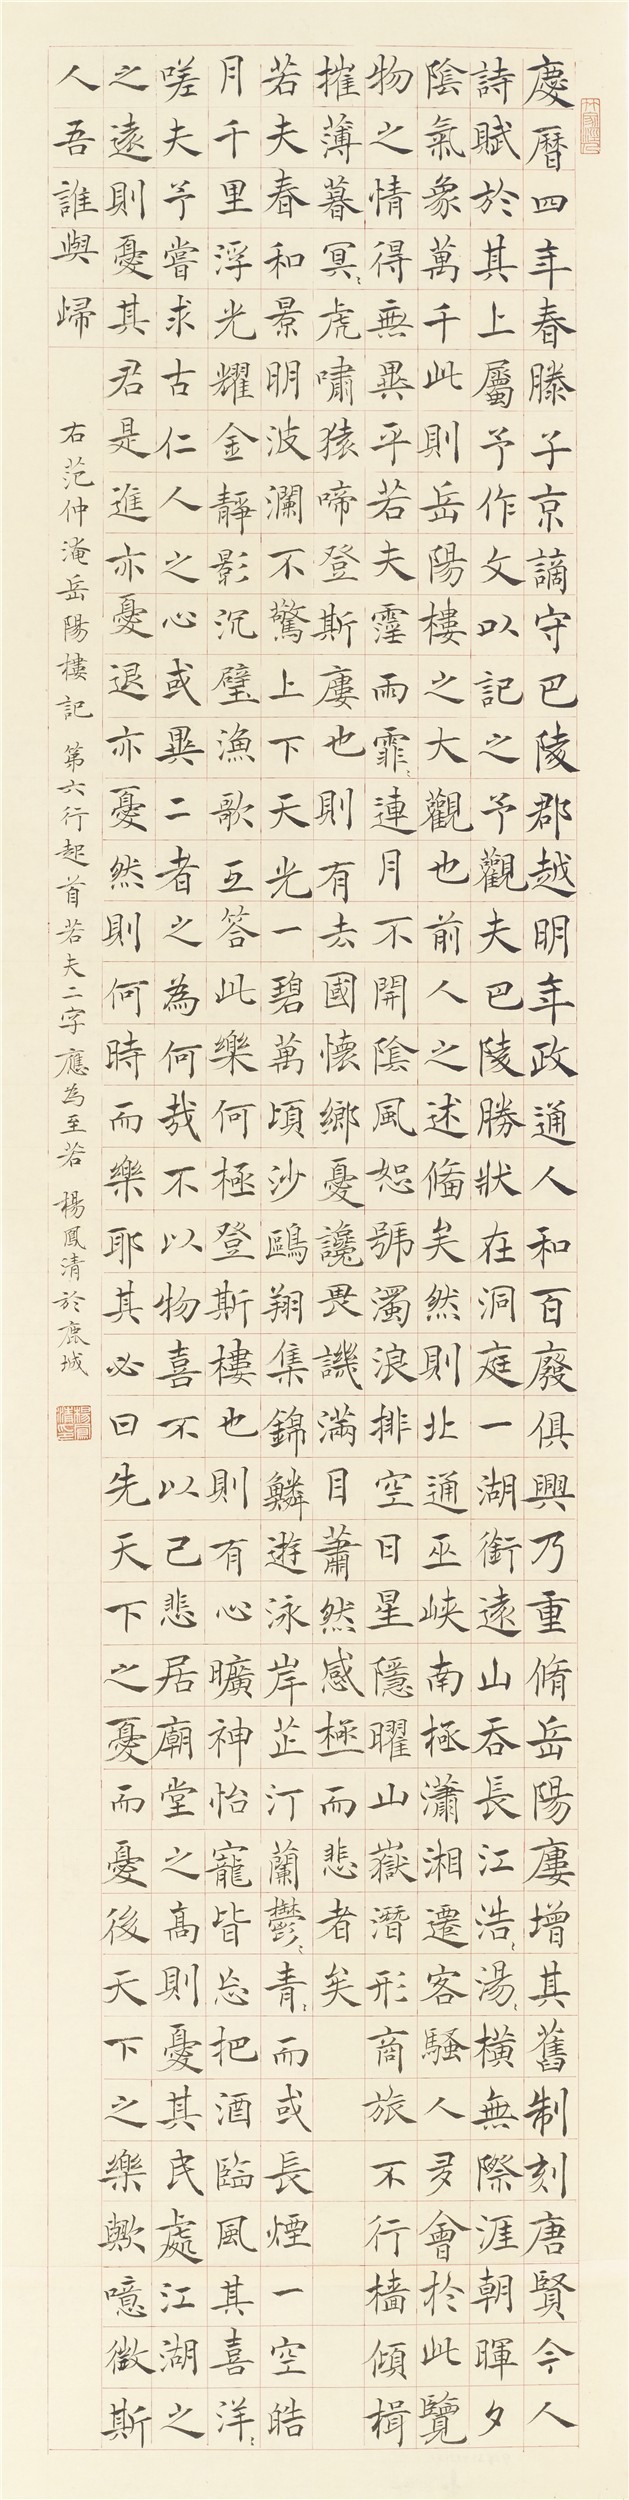 慶曆四年春滕子京謫守巴陵郡越明年政通人和百廢俱興乃重脩岳陽廔增其舊制刻唐賢今人
詩賦於其上屬予作文以記之予觀夫巴陵勝狀在洞庭一湖銜遠山吞長江浩〻湯〻橫無際涯朝暉夕
陰氣象萬千此則岳陽樓之大觀也前人之述備矣然則北通巫峽南極瀟湘遷客騷人多會於此覽
物之情得無異乎若夫霪雨霏〻連月不開陰風怒號濁浪排空日星隱曜山嶽潛形商旅不行檣傾楫
摧薄暮冥〻虎嘯猿啼登斯廔也則有去國懷鄉憂讒畏譏滿目蕭然感極而悲者矣
若夫春和景明波瀾不驚上下天光一碧萬頃沙鷗翔集錦鱗遊泳岸芷汀蘭鬱〻青〻而或長煙一空皓
月千里浮光耀金靜影沉璧漁歌互答此樂何極登斯樓也則有心曠神怡寵皆忘把酒臨風其喜洋〻
嗟夫予嘗求古仁人之心或異二者之為何哉不以物喜不以己悲居廟堂之高則憂其民處江湖之
之遠則憂其君是進亦憂退亦憂然則何時而樂耶其必曰先天下之憂而憂後天下之樂歟噫微斯
人吾誰與歸
右范仲淹岳陽樓記 第六行起首若夫二字應為至若 楊鳳清於鹿城